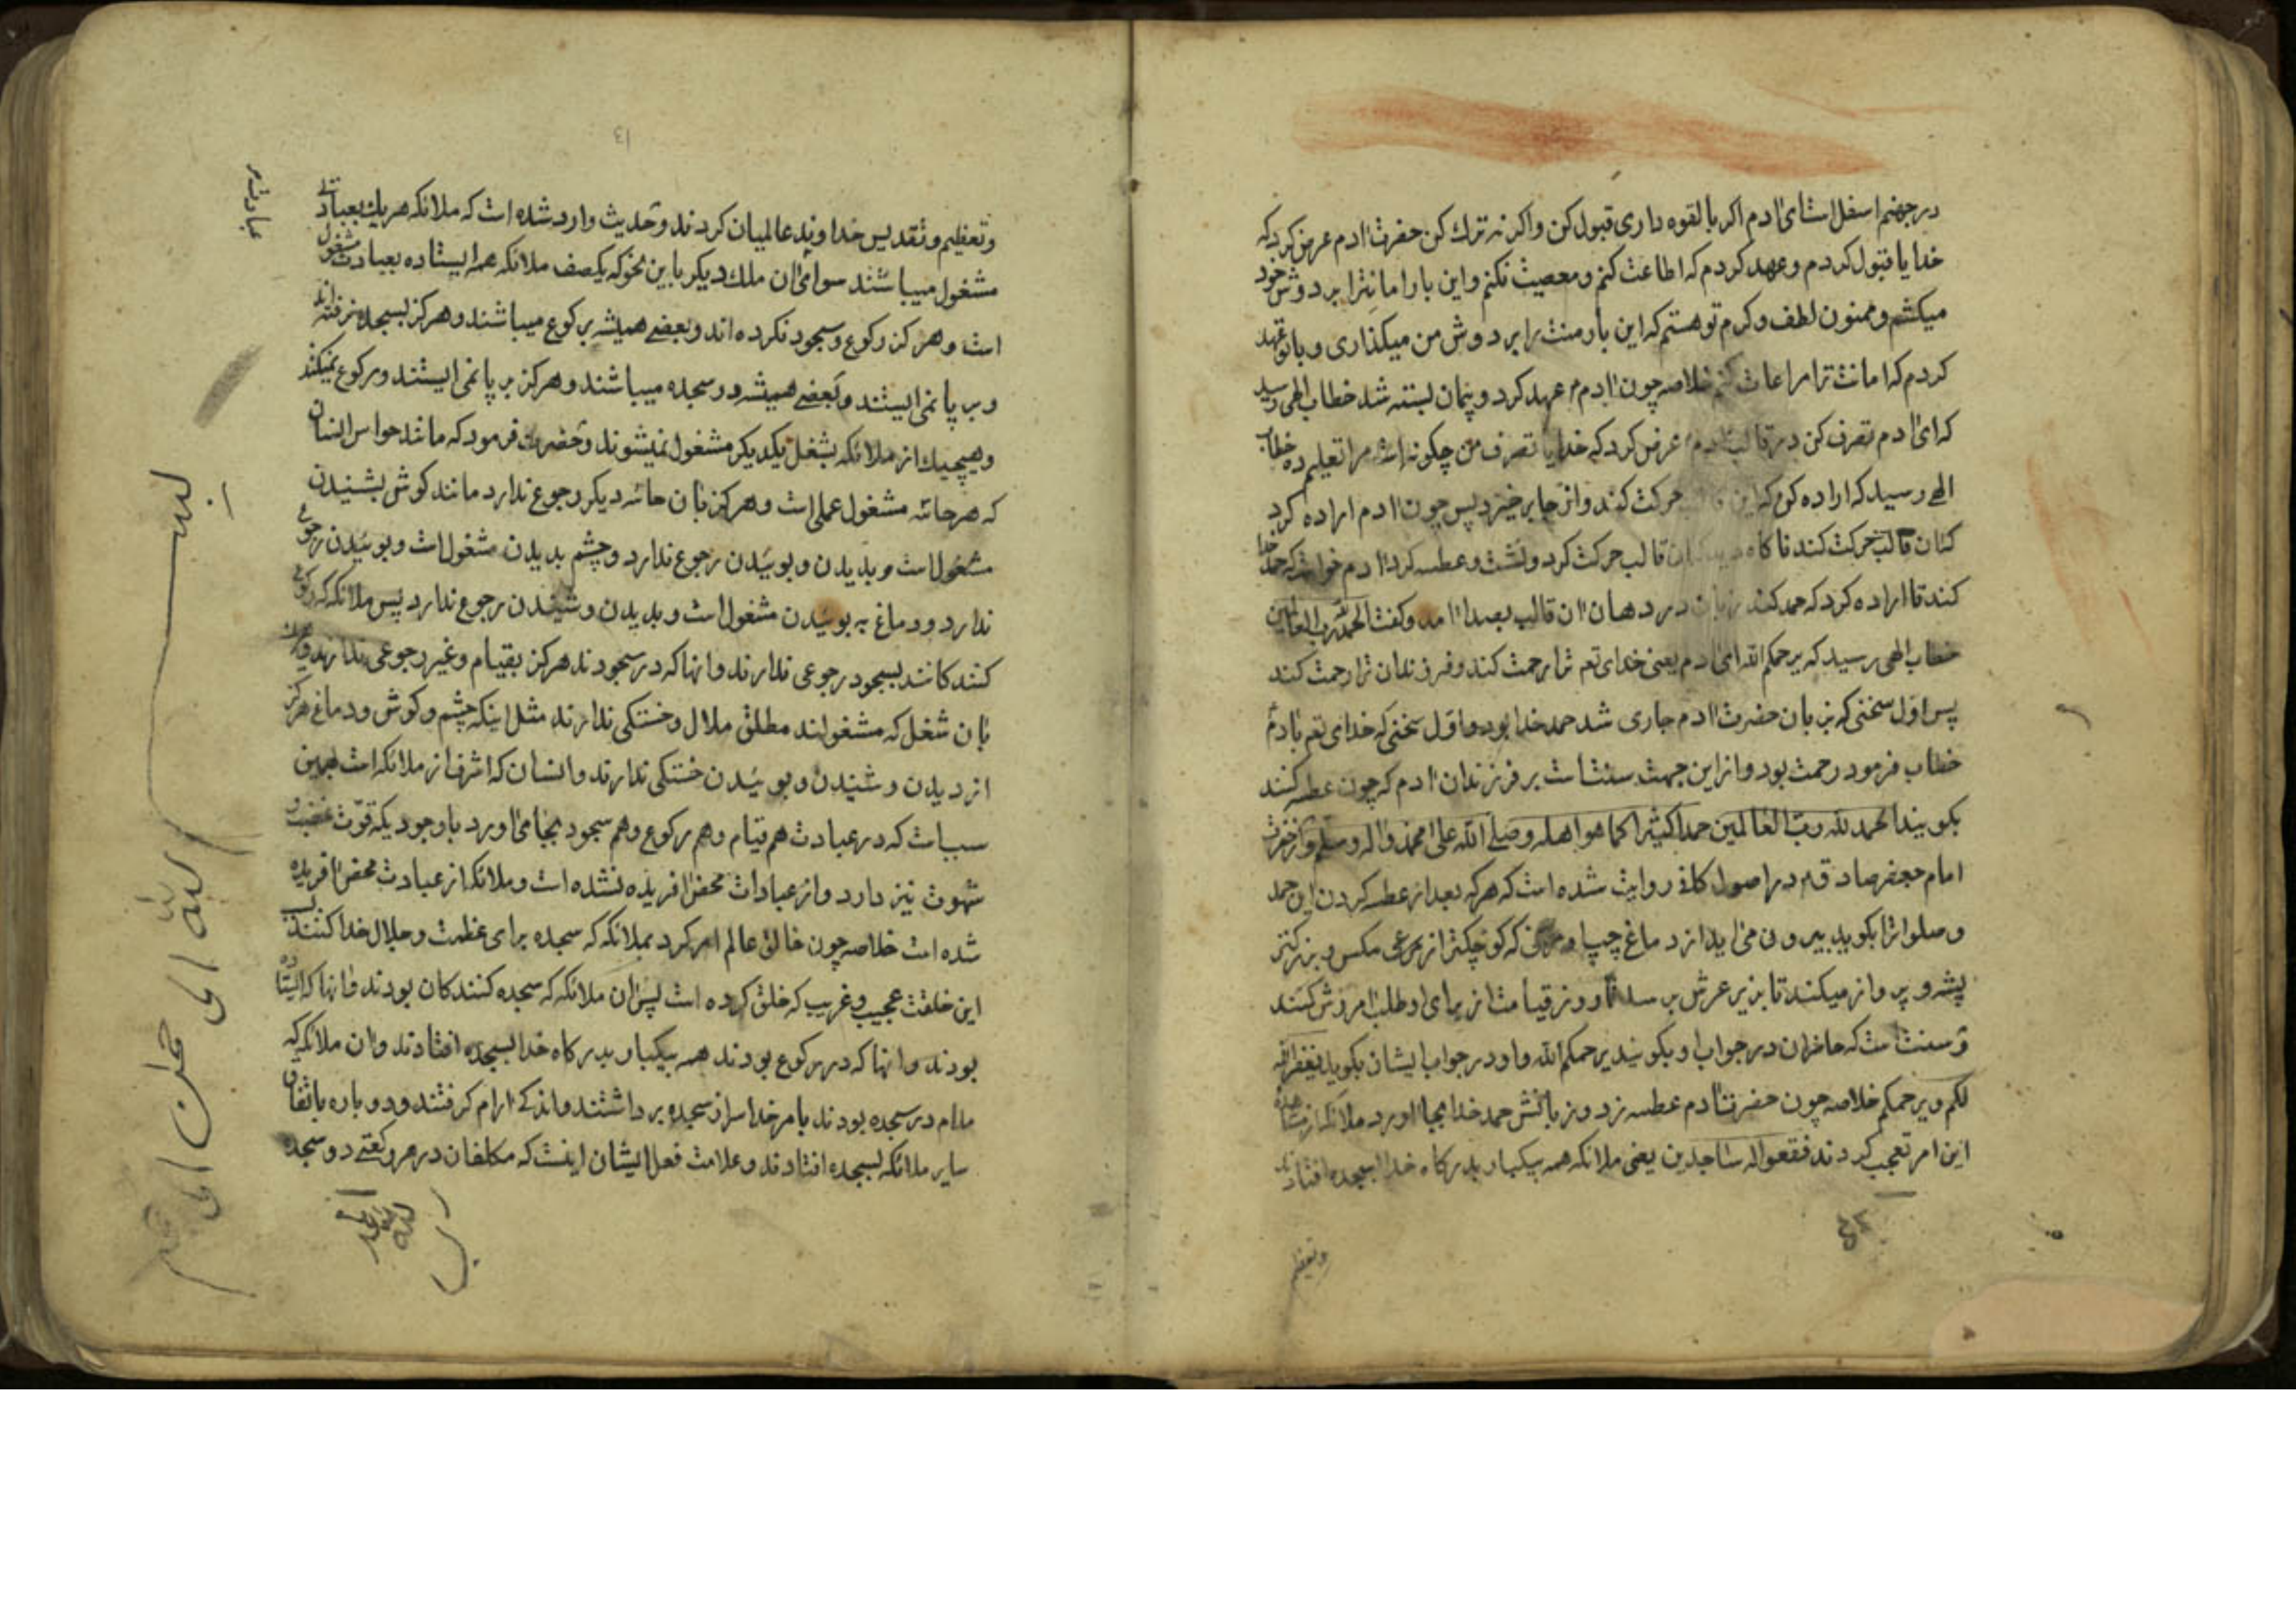 در جهنم اسفل است ای آدم اکر بالقوه داری قبول کن واکر نه ترك کن حضرت آدم عرض کرد که
خدایا قبول کردم وعهد کردم که اطاعت کنم ومعصیت نکنم واین بار امانترا بر دوش خود
میکشم وممنون لطف وکرم تو هستم که این بار منت را بر دوش من میکذاری وبا تو عهد
کردم که امانت ترا مراعات کنم خلاصه چون آدم عهد کرد وپیمان بسته شد خطاب الهی رسید
که ای آدم تصرف کن در قالب آدم عرض کرد که خدایا تصرف من چکونه است مرا تعلیم ده خطاب
الهی رسید که اراده کن که این قالب حرکت کند واز جا بر خیزد پس چون آدم اراده کرد
کان قالب حرکت کند ناکاه قالب حرکت کرد ونشست وعطسه کرد آدم خواست که حمد خدا
کند تا اراده کرد که حمد کند زبان در دهان آن قالب بصدا آمد وکفت الحمد لله رب العالمین
خطاب الهی رسید که یرحمکم الله ای آدم یعنی خدای تعم ترا رحمت کند وفرزندان ترا رحمت کند
پس اول سخنی که بزبان حضرت آدم جاری شد حمد خدا بود واول سخنی که خدای تعم بآدم
خطاب فرمود رحمت بود واز این جهت سنت است بر فرزندان آدم که چون عطسه کنند
بکویند الحمد لله رب العالمین حمدا کثیرا کما هو اهله وصلی الله علی محمد واله وسلم واز حضرت
امام جعفر صادق در اصول کافی روایت شده است که هر که بعد از عطسه کردن این حمد
وصلواترا بکوید بیرون می آید از دماغ چپ او که کوچکتر از مکس وبزرکتر
پشه وپرواز میکند تا بزیر عرش برسد تا روز قیامت از برای او طلب امرزش کنند
وسنت است که حاضران در جواب او بکویند یرحمکم الله واو در جواب ایشان بکوید یغفر الله
لکم ویرحمکم خلاصه چون حضرت آدم عطسه زد وزبانش حمد خدا بجا اورد ملائکه از مشاهده
این امر تعجب کردند فقعوا له ساجدین یعنی ملائکه همه بیکبار بدرکاه خدا بسجده افتادند
وتعظیم
13
وتعظیم وتقدیس خداوند عالمیان کردند وحدیث وارد شده است که ملائکه هریك بعبادتی
مشغول میباشند سوای آن ملك دیکر باین نحو که یکصف ملائکه همه ایستاده بعبادت مشغول
است وهرکز رکوع وسجود نکرده اند وبعضی همیشه برکوع میباشند وهرکز بسجده نرفته اند
وبر پا نمی ایستند وبعضی همیشه در سجده میباشند وهرکز بر پا نمی ایستند ورکوع نمیکند
وهیچیك از ملائکه بشغل یکدیکر مشغول نمیشوند وحضرت فرمود که مانند حواس انسان
که هر حاسه مشغول عملی است وهرکز بآن حاسه دیکر رجوع ندارد مانند کوش بشنیدن
مشغول است وبدیدن وبوئیدن رجوع ندارد وچشم بدیدن مشغول است وبوئیدن رجوع
ندارد ودماغ به بوئیدن مشغول است وبدیدن وشنیدن رجوع ندارد پس ملائکه که رکوع
کنند کانند بسجود رجوعی ندارند وآنها که در سجودند هرکز بقیام وغیر رجوعی ندارند
بآن شغل که مشغولند مطلق ملال وخستکی ندارند مثل اینکه چشم وکوش ودماغ هرکز
از دیدن وشنیدن وبوئیدن خستکی ندارند وانسان که اشرف از ملائکه است بهمین
سبب است که در عبادت هم قیام وهم رکوع وهم سجود بجا می آورد با وجودیکه قوت غضب و
شهوت نیز دارد واز عبادات محض آفریده نشده است وملائکه از عبادت محض آفریده
شده است خلاصه چون خالق عالم امر کرد بملائکه که سجده برای عظمت وجلال خدا کنند
این خلقت عجیب وغریب که خلق کرده است پس آن ملائکه که سجده کنند کان بودند وآنها که ایستاده
بودند وآنها که در رکوع بودند همه بیکبار بدرکاه خدا بسجده افتادند وآن ملائکه که
مدام در سجده بودند بامر خدا سر از سجده برداشتند واندکی آرام کرفتند ودوباره باتفاق
سایر ملائکه بسجده افتادند وعلامت فعل ایشان اینست که مکلفان در هر رکعتی دو سجده